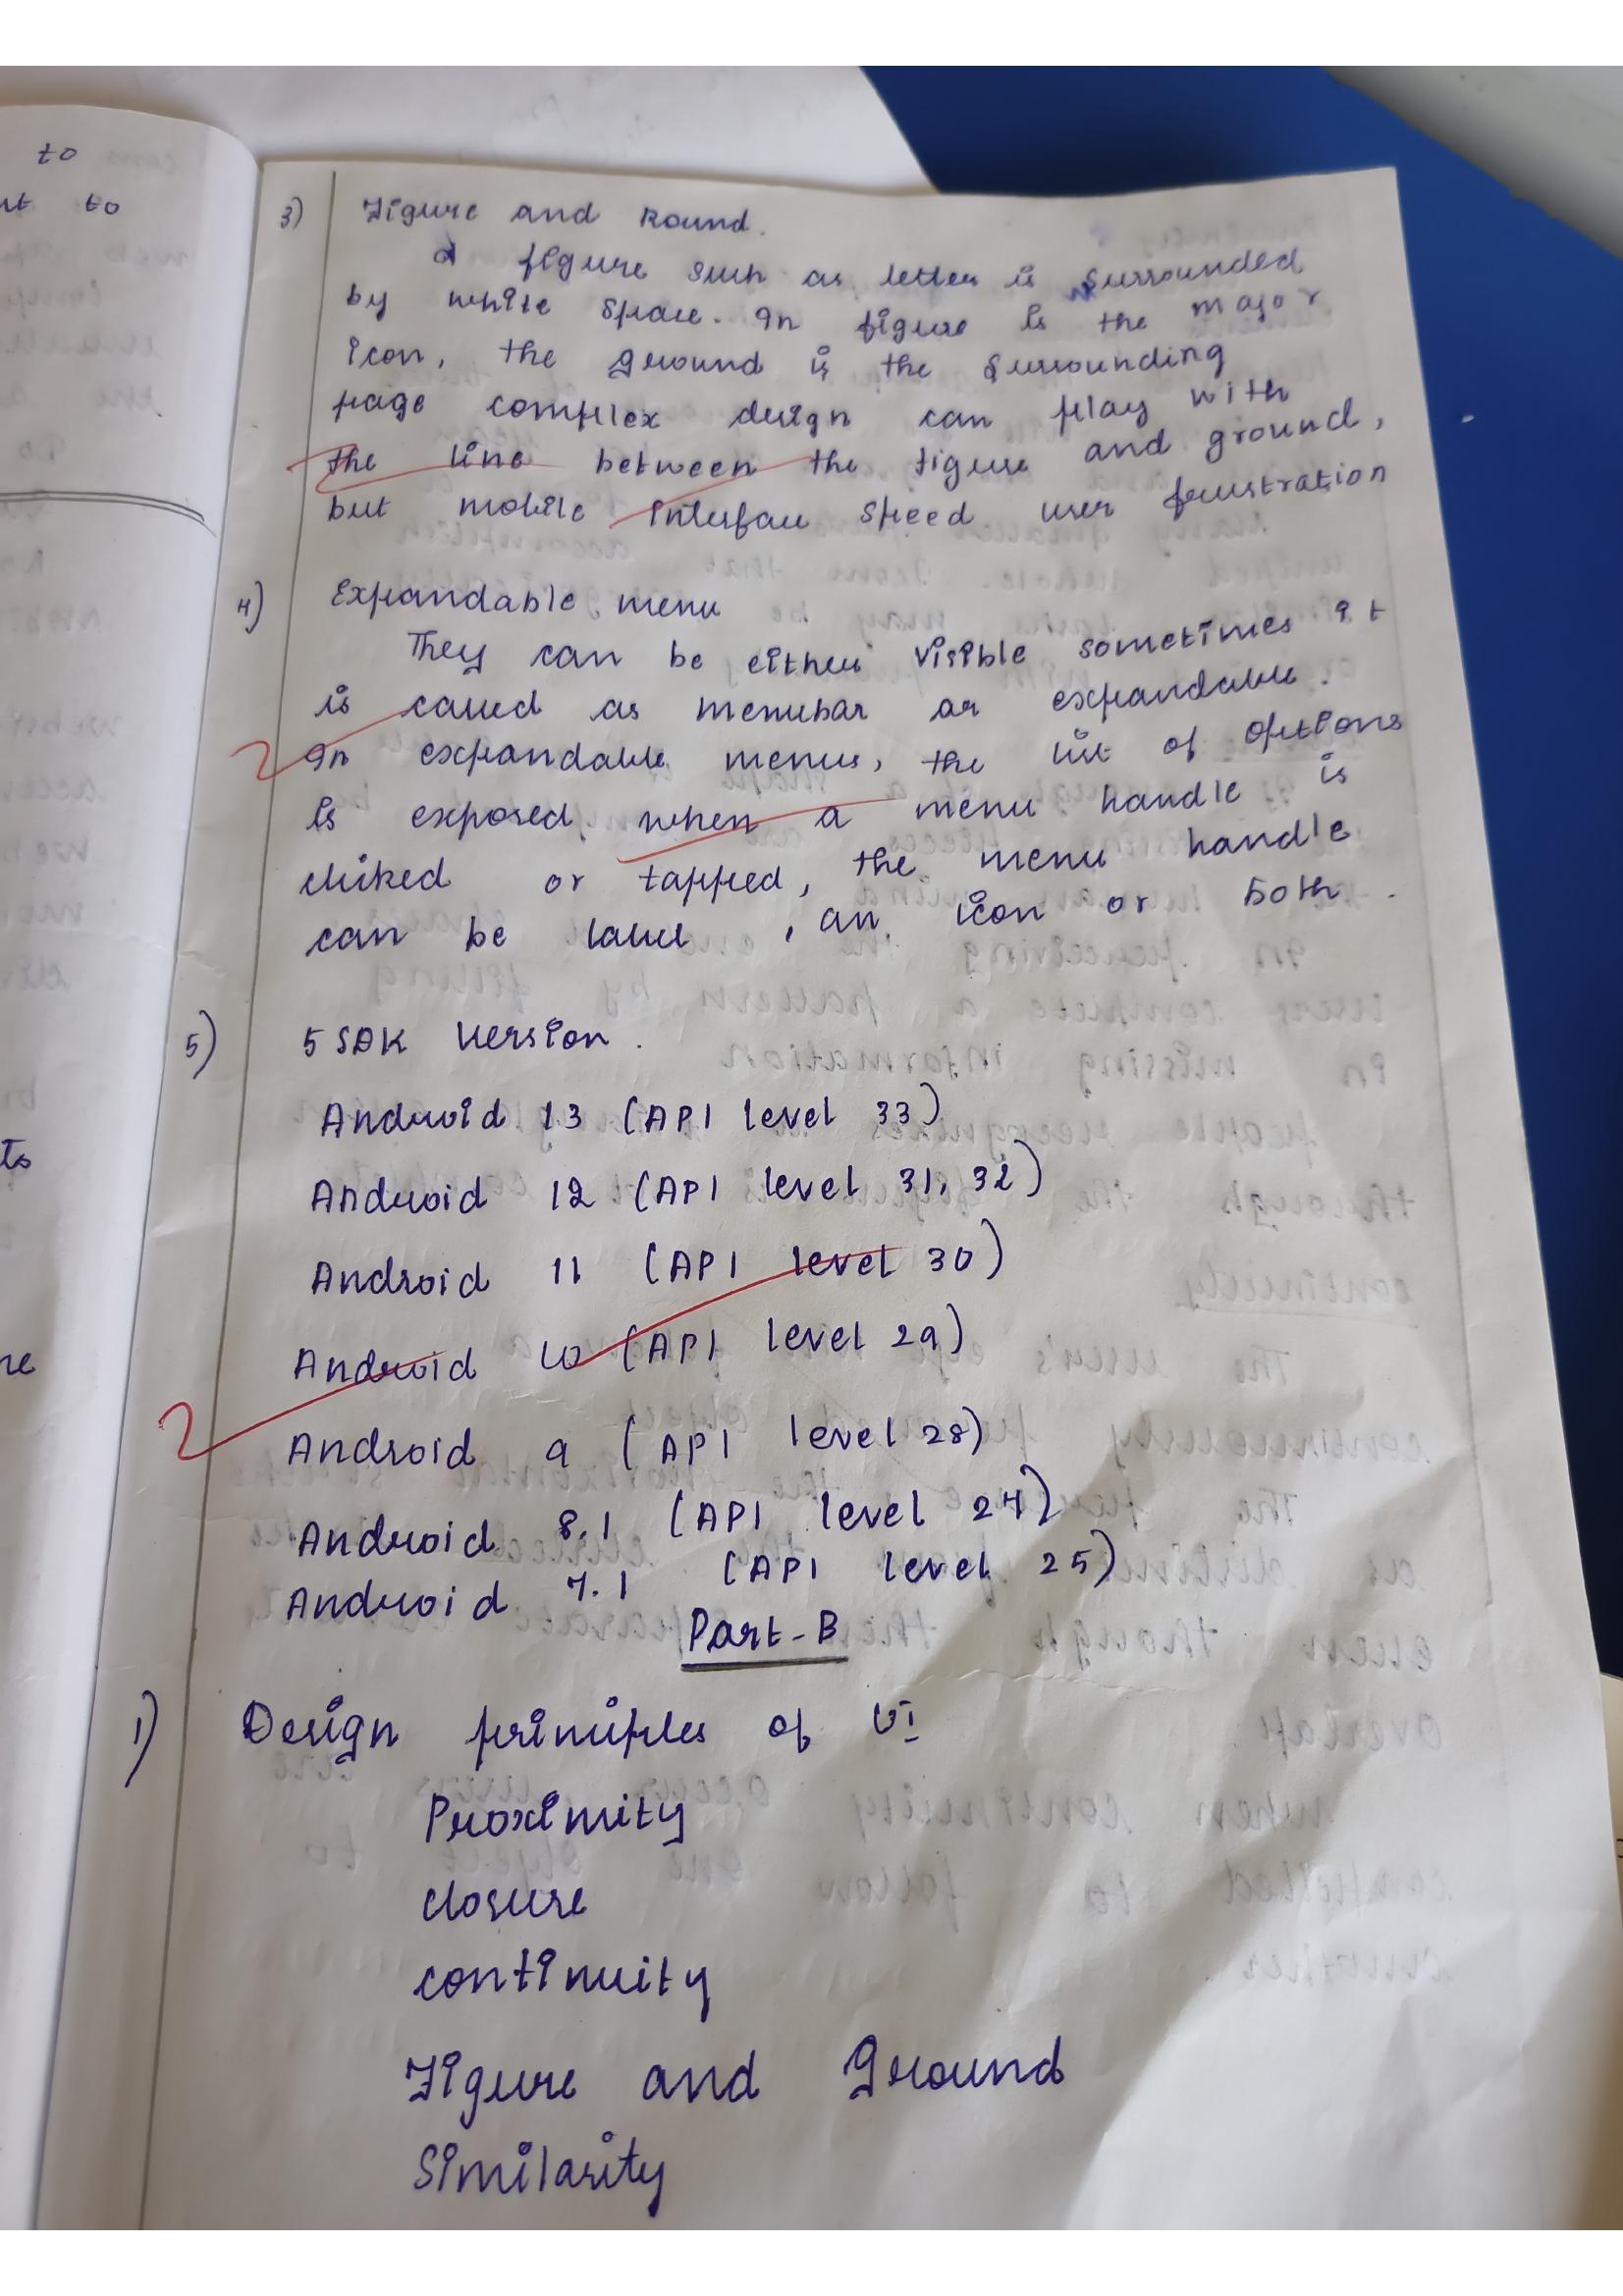 to
to
3) Figure and Round.
A figure such as letter is surrounded
by white space. In figure is the major
icon, the ground is the surrounding
page complex design can play with
the line between the figure and ground,
but mobile interface speed user frustration
4) Expandable menu
They can be either visible sometimes it
is called as menubar or expandable.
In expandable menus, the list of options
is exposed when a menu handle is
cliked or tapped, the menu handle
can be label , an icon or both.
5) 5 SDK Version.
Android 13 (API level 33)
Android 12 (API level 31, 32)
Android 11 (API level 30)
Android 10 (API level 29)
2
Android 9 (API level 28)
Android 8.1 (API level 27)
Android 7.1 (API level 25)
Part-B
1) Design principles of UI
Proximity
closure
continuity
Figure and Ground
Similarity